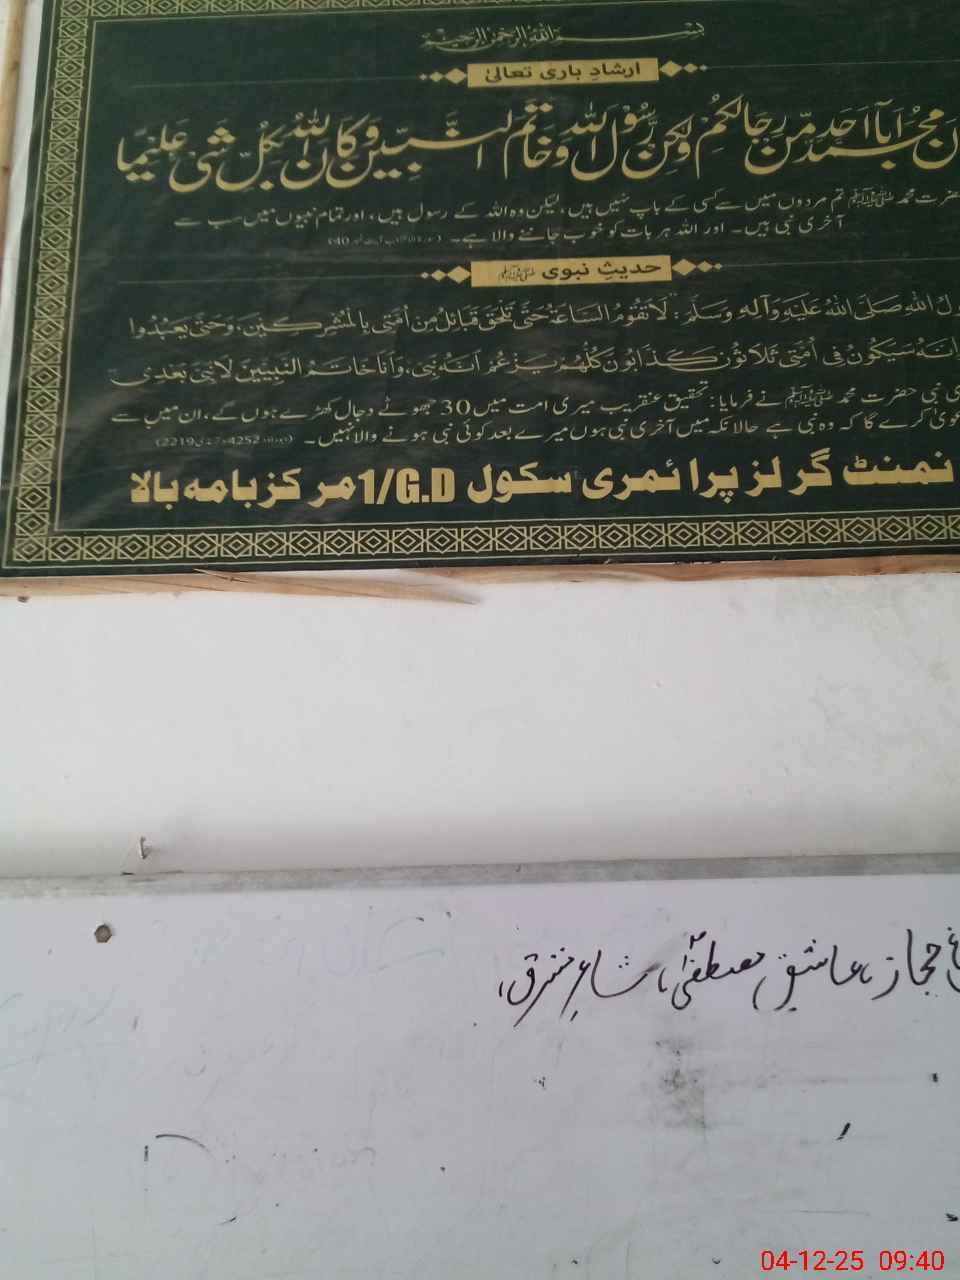 بسم الله الرحمن الرحيم
ارشادِ باری تعالیٰ
مُحَمَّدٌ اَبَآ اَحَدٍ مِّنْ رِّجَالِكُمْ وَلٰكِنْ رَّسُوْلَ اللّٰهِ وَخَاتَمَ النَّبِیّٖنَ وَكَانَ اللّٰهُ بِكُلِّ شَیْءٍ عَلِیْمًا
حضرت محمد ﷺ تم مردوں میں سے کسی کے باپ نہیں ہیں، لیکن وہ اللہ کے رسول ہیں، اور تمام نبیوں میں سب سے
آخری نبی ہیں۔ اور اللہ ہر بات کو خوب جاننے والا ہے۔
حدیثِ نبوی ﷺ
اللهِ صَلَى اللهُ عَلَيْهِ وَآلِهِ وَسَلَّمَ: لَا تَقُومُ السَّاعَةُ حَتَّى تَلْحَقَ قَبَائِلُ مِنْ أُمَّتِي بِالْمُشْرِكِينَ، وَحَتَّى يَعْبُدُوا
وَإِنَّهُ سَيَكُونُ فِي أُمَّتِي ثَلَاثُونَ كَذَّابُونَ كُلُّهُمْ يَزْعُمُ أَنَّهُ نَبِي، وَأَنَا خَاتَمُ النَّبِيِّينَ لَا نَبِيَّ بَعْدِي
نبی حضرت محمد ﷺ نے فرمایا: تحقیق عنقریب میری امت میں 30 جھوٹے دجال کھڑے ہوں گے، ان میں سے
کرے گا کہ وہ نبی ہے حالانکہ میں آخری نبی ہوں میرے بعد کوئی نبی ہونے والا نہیں۔ (ابوداؤد 4252، ترمذی 2219)
نمنٹ گرلز پرائمری سکول 1/G.D مرکز بامہ بالا
حجاز، عاشقِ مصطفیٰؐ، شاعرِ مشرق،
04-12-25 09:40